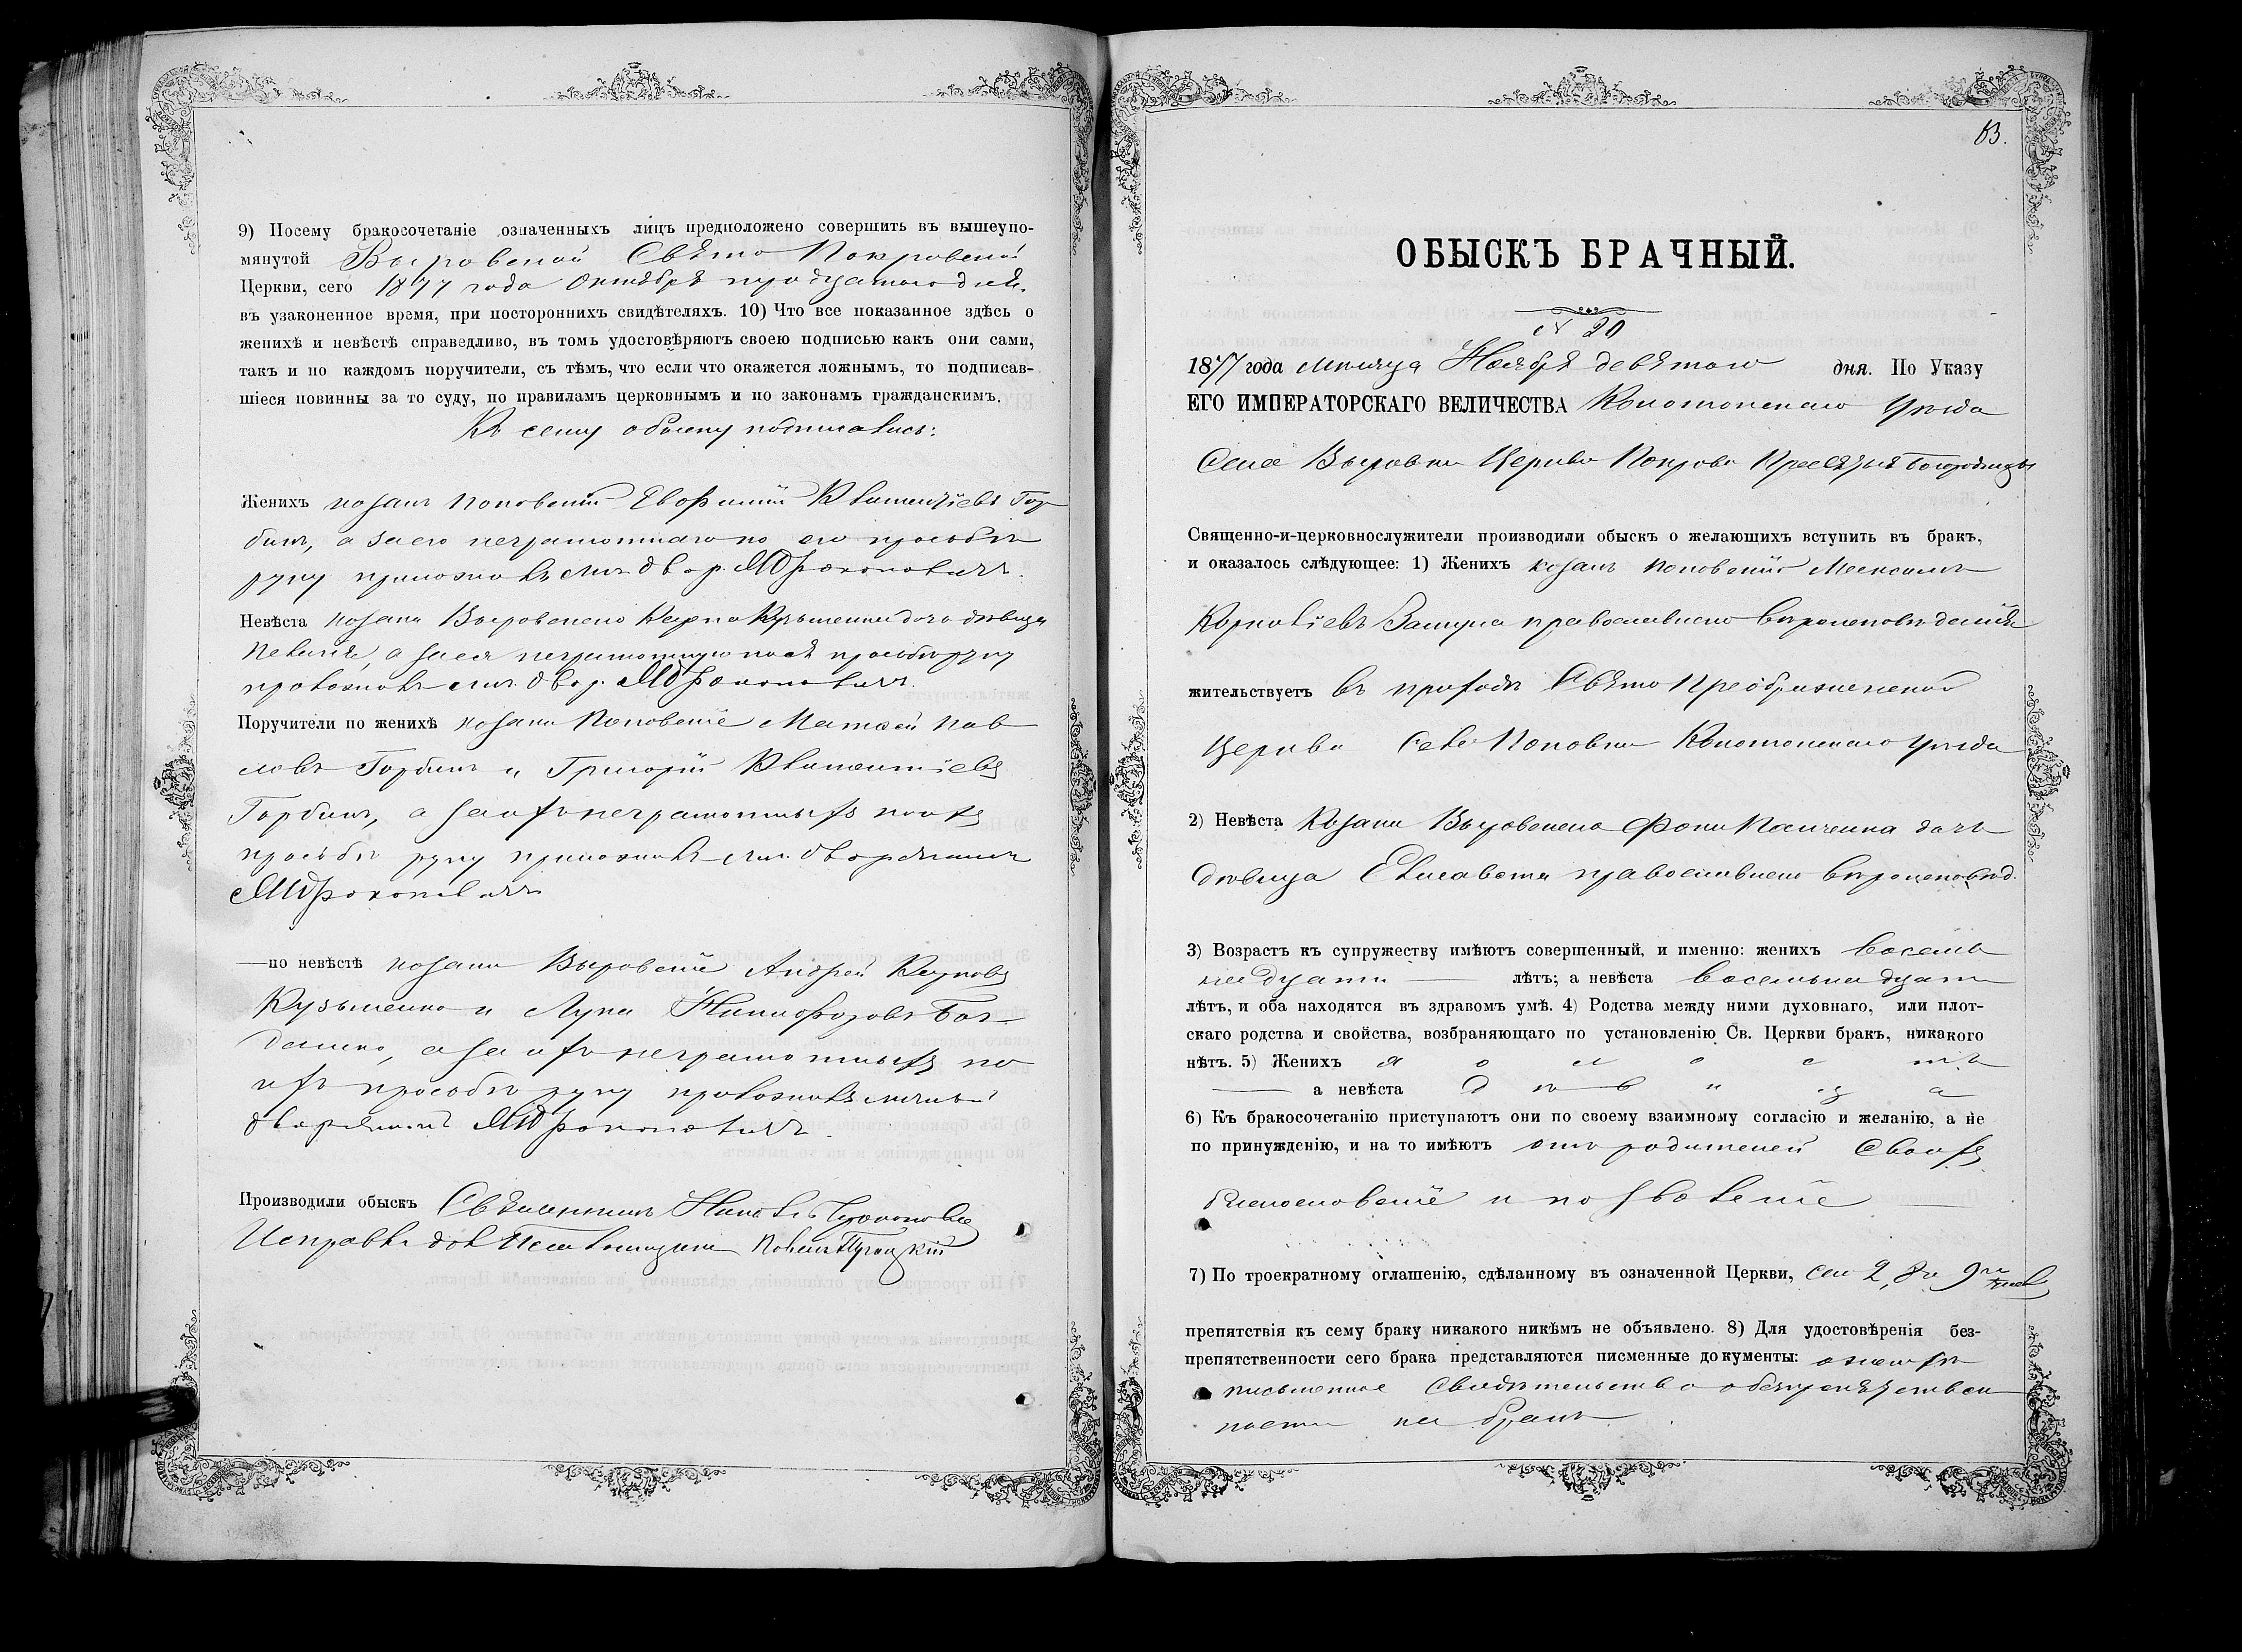 9) Посему бракосочетаніе означенныхъ лицъ предположено совершить въ вышеупо-
мянутой Выровской Свято Покровской
Церкви, сего 1877 года Октября тридцатаго дня.
въ узаконенное время, при постороннихъ свидѣтеляхъ. 10) Что все показанное здѣсь о
женихѣ и невѣстѣ справедливо, въ томъ удостовѣряютъ своею подписью какъ они сами,
такъ и по каждомъ поручители, съ тѣмъ, что если что окажется ложнымъ, то подписав-
шіеся повинны за то суду, по правиламъ церковнымъ и по законамъ гражданскимъ.
Къ сему обыску подписались:
Женихъ козакъ Поповскій Евфимій Климентіевъ Гор
бикъ, а за его неграмотнаго по его просьбѣ
руку приложилъ лич. двор. Прокоповичъ.
Невѣста козака Выровскаго Карпа Кузьменка дочь дѣвица
а за ея неграмотную по ея просьбѣ руку
приложилъ лич. двор. Прокоповичъ.
Поручители по женихѣ козаки Поповскіе Матѳей Пав
ловъ Горбикъ и Григорій Климентіевъ
Горбикъ, а за ихъ неграмотныхъ по ихъ
просьбѣ руку приложилъ лич. дворянинъ
Прокоповичъ
—по невѣстѣ козаки Выровскіе Андрей Карповъ
Кузьменко и Лука Никифоровъ Бог
данко, а за ихъ неграмотныхъ по
ихъ просьбѣ руку приложилъ личный
дворянинъ Прокоповичъ.
Производили обыскъ Священникъ
Исправл. дол. Псаломщика Павелъ
63.
ОБЫСКЪ БРАЧНЫЙ.
N 20
1877 года мѣсяца Ноября девятого дня. По Указу
ЕГО ИМПЕРАТОРСКАГО ВЕЛИЧЕСТВА Конотопскаго Уѣзда
Села Выровки Церкви Покрова Пресвятыя Богородицы
Священно-и-церковнослужители производили обыскъ о желающихъ вступить въ бракъ,
и оказалось слѣдующее: 1) Женихъ козакъ Поповскій Максимъ
Корніевъ православнаго вѣроисповѣданія
жительствуетъ въ приходѣ Свято Преображенской
Церкви села Поповки Конотопскаго уѣзда
2) Невѣста козака Выровскаго Фоки Панченка дочь
дѣвица Елисавета православнаго вѣроисповѣд.
3) Возрастъ къ супружеству имѣютъ совершенный, и именно: женихъ восемь
надцати — лѣтъ; а невѣста восемьнадцати
лѣтъ, и оба находятся въ здравомъ умѣ. 4) Родства между ними духовнаго, или плот-
скаго родства и свойства, возбраняющаго по установленію Св. Церкви бракъ, никакого
нѣтъ. 5) Женихъ холостъ
— а невѣста дѣвица
6) Къ бракосочетанію приступаютъ они по своему взаимному согласію и желанію, а не
по принужденію, и на то имѣютъ отъ родителей своихъ
благословеніе и позволеніе —
7) По троекратному оглашенію, сдѣланному въ означенной Церкви, сего 2, 8 и 9го
препятствія къ сему браку никакого никѣмъ не объявлено. 8) Для удостовѣренія без-
препятственности сего брака представляются писменные документы: о женихѣ
письменное свидѣтельство о безпрепятствен
ности на бракъ